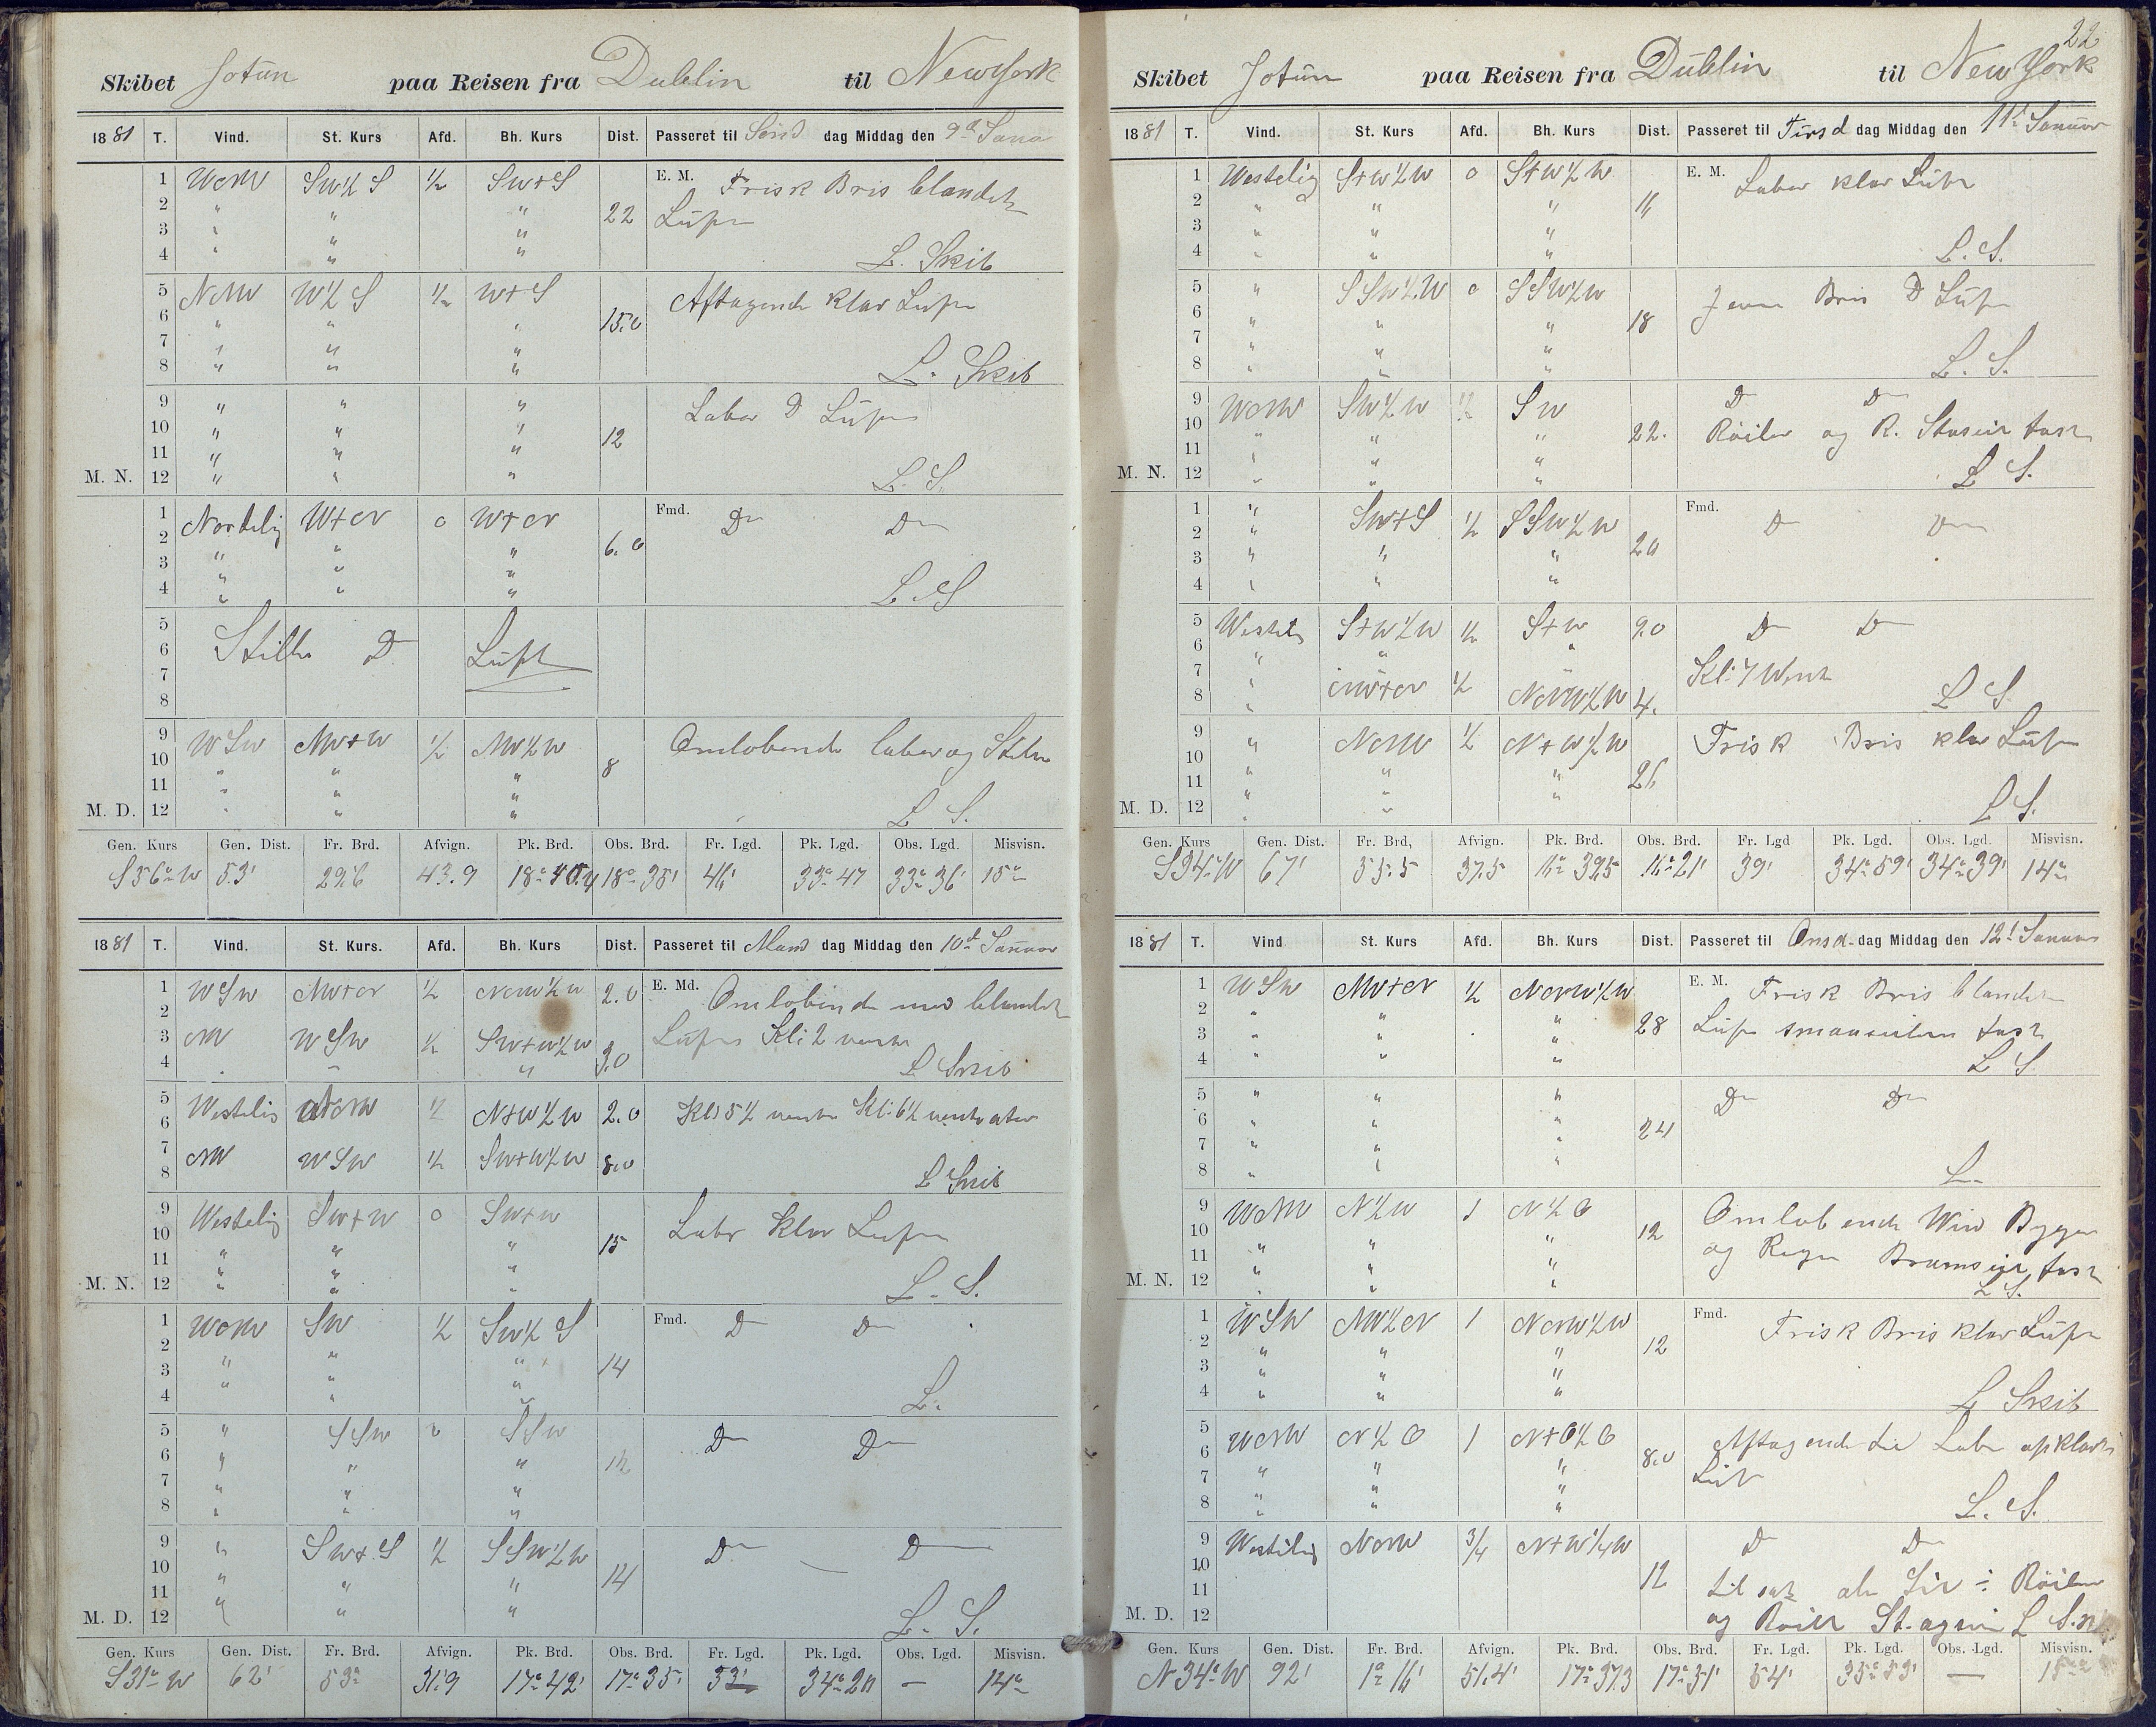 Skibet Jotün paa Reisen fra Dublin til New York
1881 T. Vind. St. Kurs Afd. Bh. Kurs Dist. Passeret til Sönd dag Middag den 9d Janu
1 WNW SW½S ½ SW+S E. M. Frisk Bris blandet
2 " " " 22 Luft
3 " " "
4 " " " L. Skib
5 NNW W½S ½ W+S Aftagende klar Luft
6 " " " 15.0
7 " " "
8 " " " L. Skib
9 " " " Laber D Luft
10 " " " 12
11 " " "
M. N. 12 " " " L. S.
1 Nordelig W+N 0 W+N Fmd. D D
2 " " " 6.0
3 " " "
4 " " " L. S
5
6 Stille D Luft
7
8
9 WSW NW+W ½ NW½W Omlobende laber og Stille
10 " " " 8
11 " " "
M. D. 12 " " " L S.
Gen. Kurs Gen. Dist. Fr. Brd. Afvign. Pk. Brd. Obs. Brd. Fr. Lgd. Pk. Lgd. Obs. Lgd. Misvisn.
S56°W 53' 29.6 43.9 18° 18°38' 46' 33°47 33°36' 15°
1881 T. Vind. St. Kurs. Afd. Bh. Kurs Dist. Passeret til Mand dag Middag den 10d Januar
1 WSW NW+N ½ NNW½W 2.0 E. Md. Omlobende med blandet
2
3 NW WSW ½ SW+W½W 9.0 Luft Kl: 2 vendt
4 " L Skib
5 Westelig NNW ½ N+W½W 2.0 Kl: 5½ vendte Kl: 6½ vendt ater
6
7 NW WSW ½ SW+W½W 8.0
8 L Skib
9 Westelig SW+W 0 SW+W Laber klar Luft
10 " " " 15
11 " " "
M. N. 12 " " " L. S.
1 WNW SW ½ SW½S Fmd. D D
2 " " "
3 " " " 14
4 " " L.
5 " SSW 0 SSW D D
6 " " " 12
7 " " "
8 " " "
9 " SW+S ½ SSW½W D D
10 " " " 14
11 " " "
M. D. 12 " " L. S.
Gen. Kurs Gen. Dist. Fr. Brd. Afvign. Pk. Brd. Obs. Brd. Fr. Lgd. Pk. Lgd. Obs. Lgd. Misvisn.
S31°W 62' 53 31.9 17°42' 17°35' 33' 34°20 — 14°
22
Skibet Jotün paa Reisen fra Dublin til New York
1881 T. Vind. St. Kurs Afd. Bh. Kurs Dist. Passeret til Tirsd dag Middag den 11t Januar
1 Westelig S+W½W 0 S+W½W E. M. Laber klar Luft
2 " " " 16
3 " " "
4 " " " L. S.
5 " SSW½W 0 SSW½W Jevn Bris D Luft
6 " " " 18
7 " " "
8 " " " L. S.
9 WNW SW½W ½ SW D D
10 " " " 22. Röiler og R. Staseil fast
11 " " "
M. N. 12 " " " L S.
1 " SW+S ½ SSW½W Fmd. D D
2 " " " 20
3 " " "
4 " " "
5 Westelig S+W½W ½ S+W 9.0 D D
6 " " "
7 " NW+N ½ NNW½W 4. Kl: 7 Wendt
8 " L S.
9 " NNW ½ N+W½W Frisk Bris klar Luft
10 " " " 26
11 " " "
M. D. 12 " " L S.
Gen. Kurs Gen. Dist. Fr. Brd, Afvign. Pk. Brd. Obs. Brd. Fr. Lgd Pk. Lgd. Obs. Lgd. Misvisn.
S34°W 67' 55.5 37.5 16°39.5 16°21' 39' 34°59' 34°39' 14°
1881 T. Vind St. Kurs Afd. Bh. Kurs Dist. Passeret til Onsd- dag Middag den 12t Januar
1 WSW NW+N ½ NNW½W E. M. Frisk Bris blandet
2 " " " 28 Luft smaaseilene fast
3 " " "
4 " " " L S.
5 " " " D D
6 " " " 24
7 " " "
8 " " " L.
9 WNW N½W 1 N½O Omlobende Wind Byger
10 " " " 12 og Regn Bramseil fast
11 " " "
M. N. 12 " " " L S.
1 WSW NW½N 1 NNW½W Fmd. Frisk Bris klar Luft
2 " " " 12
3 " " "
4 " " " L Skib
5 WNW N½O 1 N+O½O Aftagende til Laber opklart
6 " " " 8.0 Luft
7 " " "
8 " " " L. S.
9 Westelig NNW 3/4 N+W¼W D D
10
11 12 til sat alle Seil ÷ Röilen
M. D. 12 og Roiel St. agseil L S.
Gen. Kurs Gen. Dist. Fr. Brd. Afvign. Pk. Brd. Obs. Brd. Fr. Lgd. Pk. Lgd. Obs. Lgd. Misvisn.
N34°W 92' 1°16' 51.4' 17°37.3 17°31' 54' 35°53' — 15°